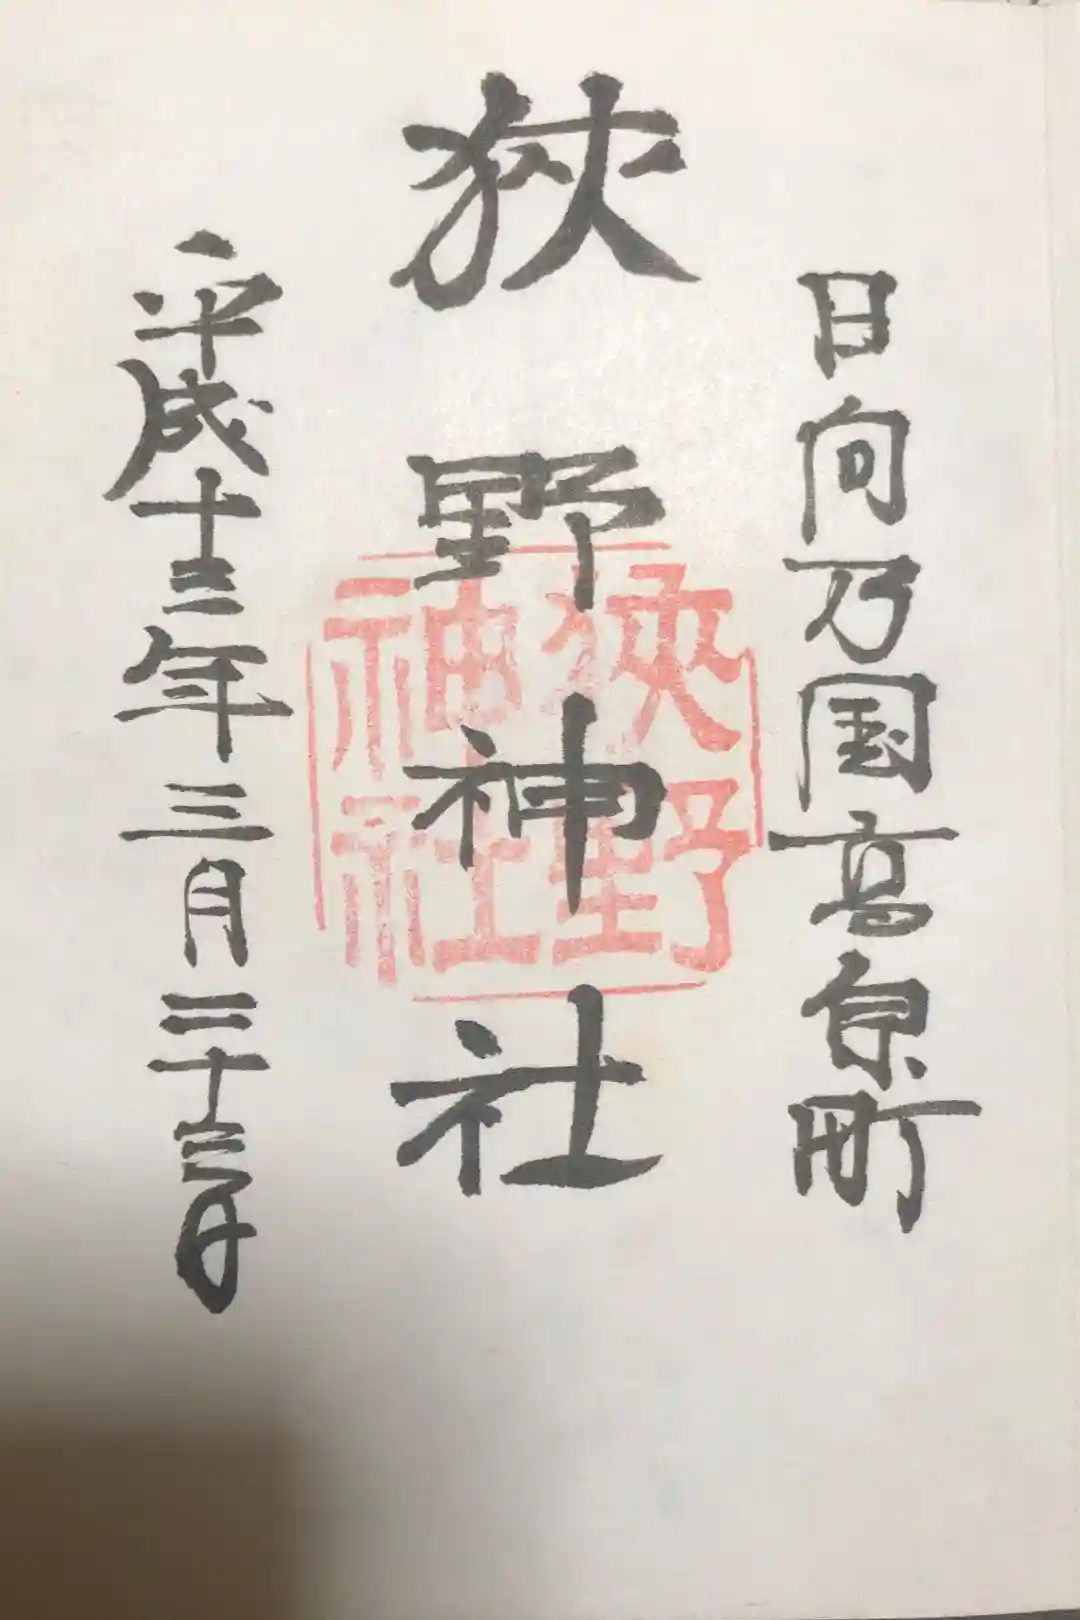 日向乃国高原町
狭野神社
狭野
神社
平成十三年三月二十三日